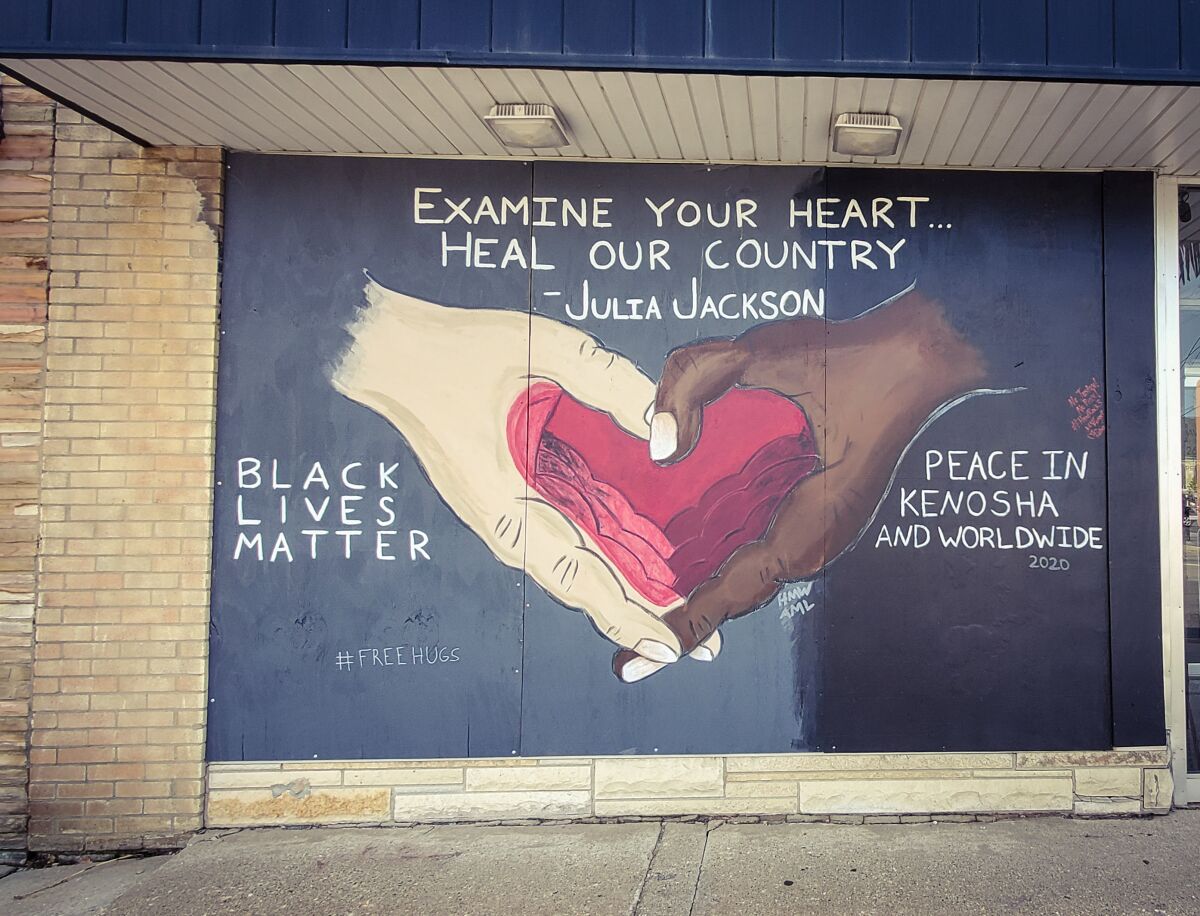 EXAMINE YOUR HEART...
HEAL OUR COUNTRY
-JULIA JACKSON
BLACK
LIVES
MATTER
PEACE IN
KENOSHA
AND WORLDWIDE
2020
HMW
AML
#FREEHUGS